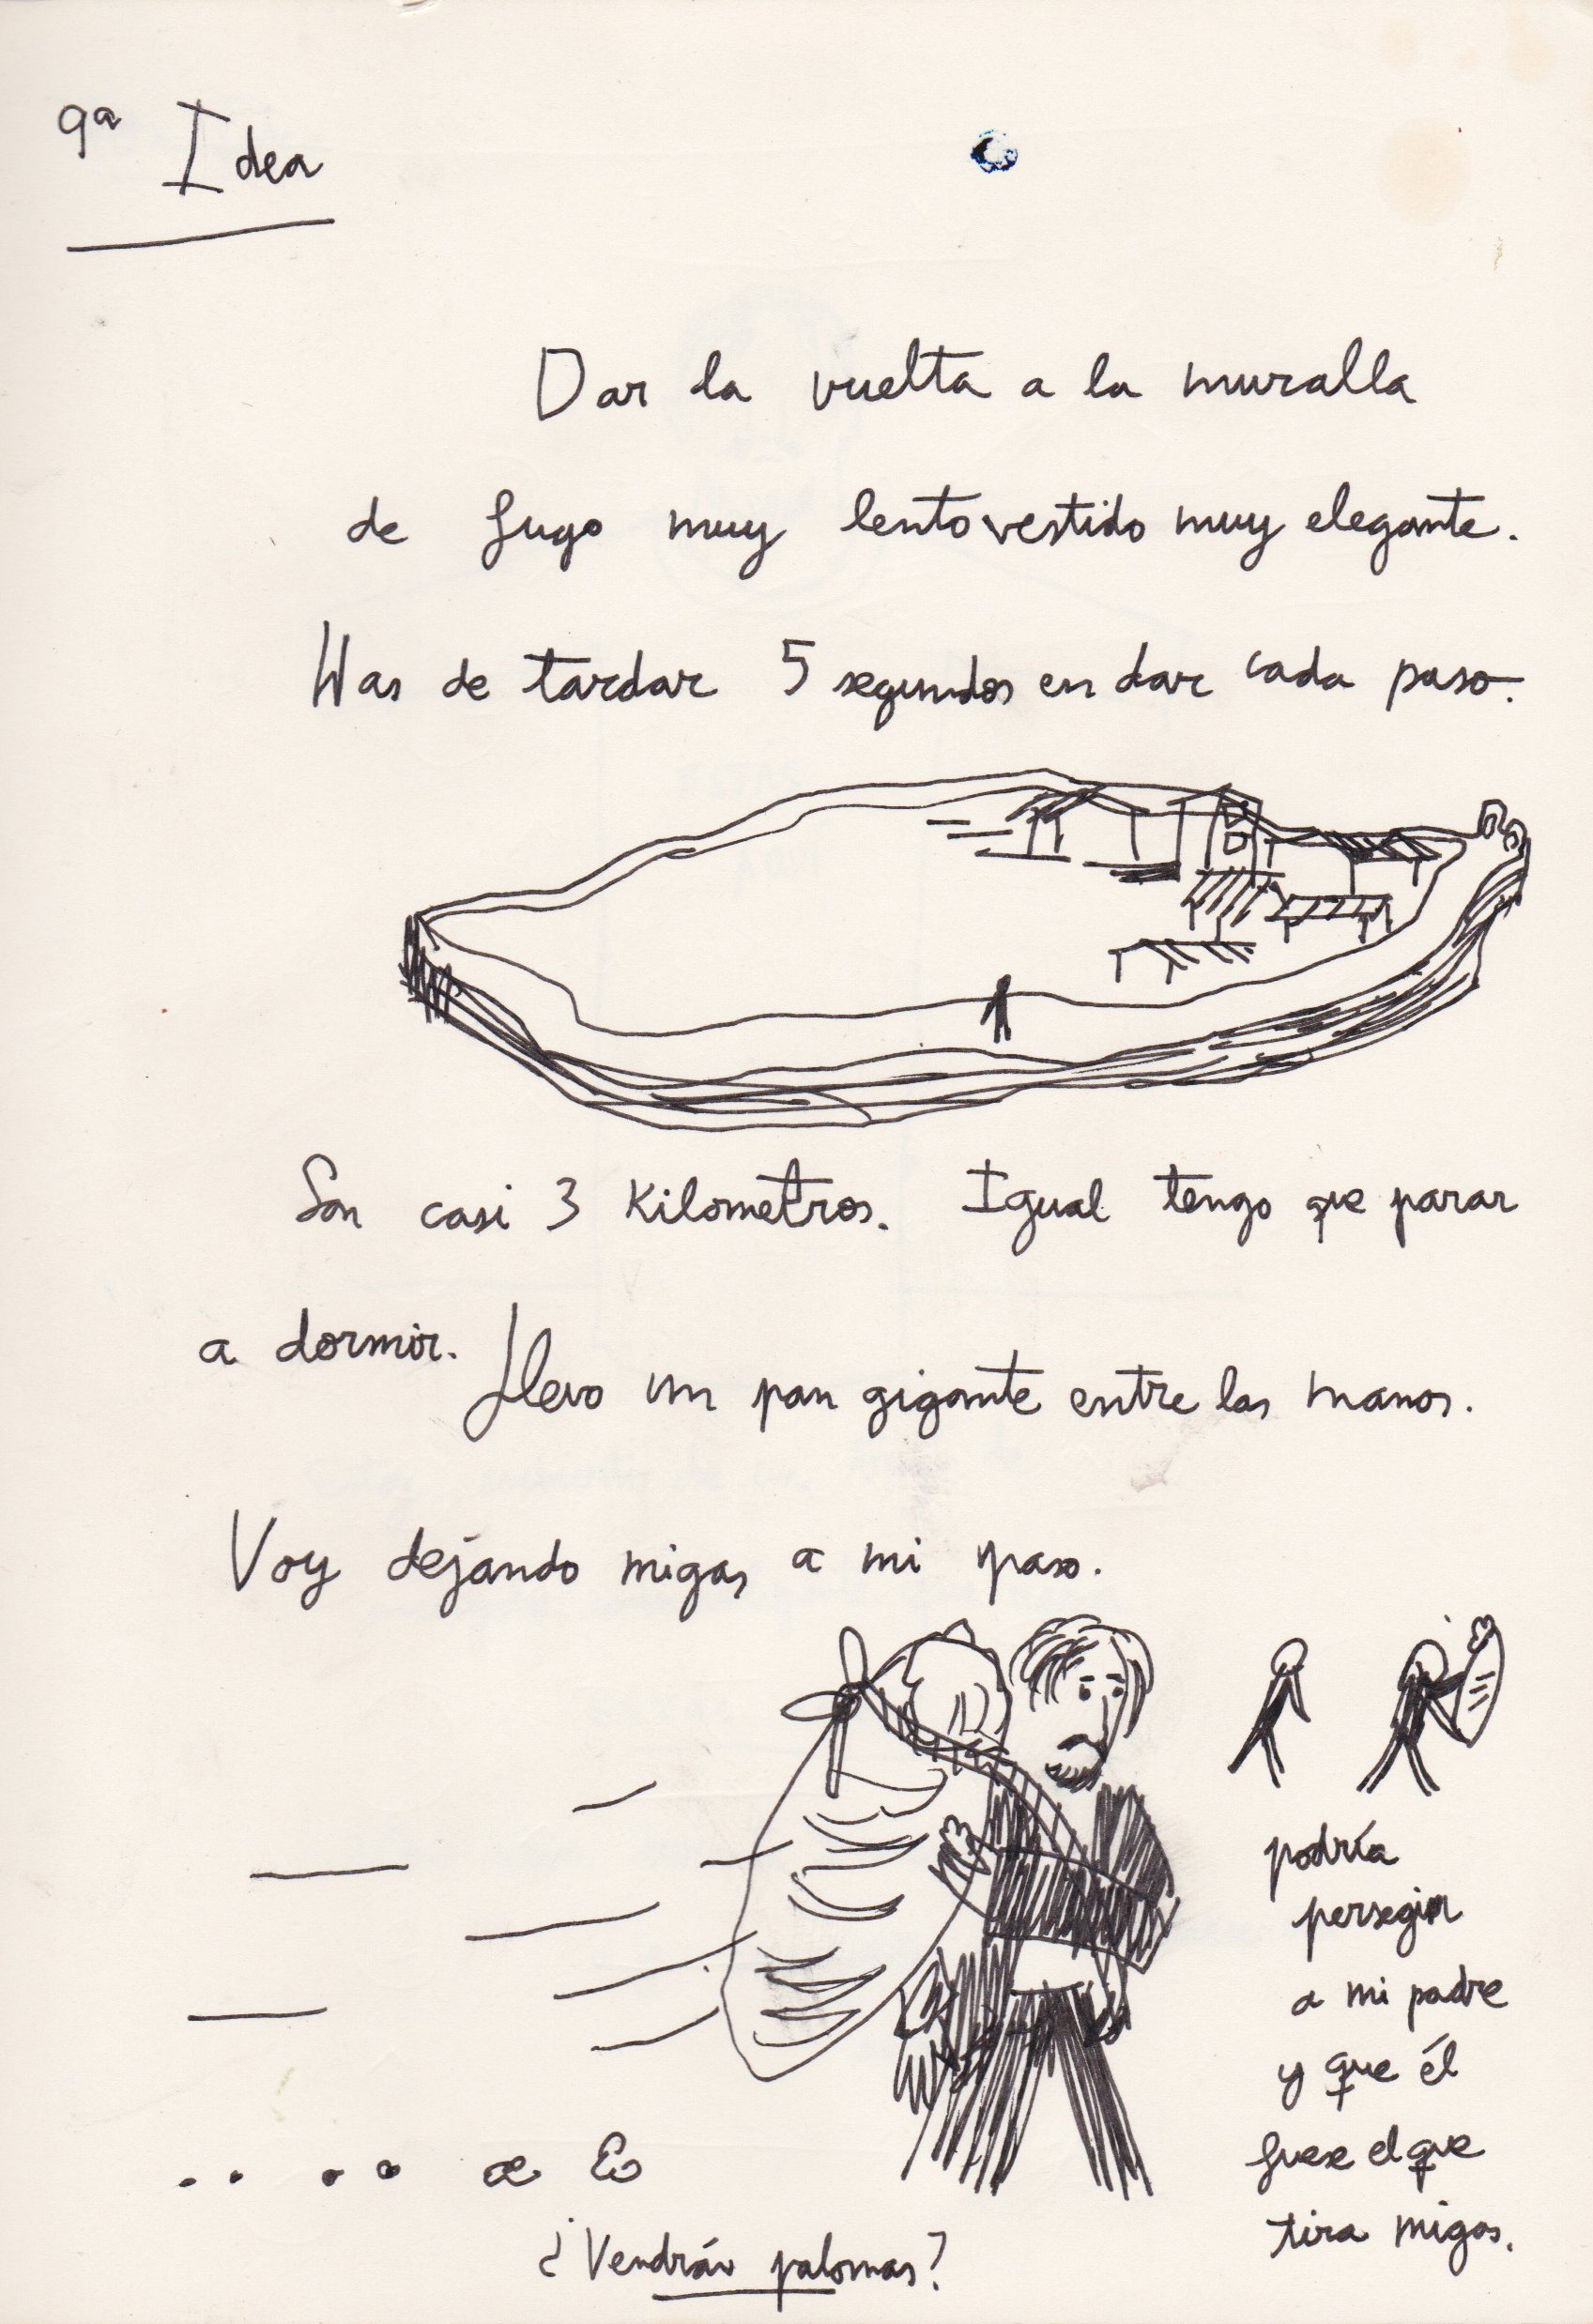 9ª Idea
Dar la vuelta a la muralla
de Lugo muy lento vestido muy elegante.
Has de tardar 5 segundos en dar cada paso.
Son casi 3 Kilometros. Igual tengo que parar
a dormir. Llevo un pan gigante entre las manos.
Voy dejando migas a mi paso.
podría
persegir
a mi padre
y que él
fuese el que
tira migas.
¿Vendrán palomas?